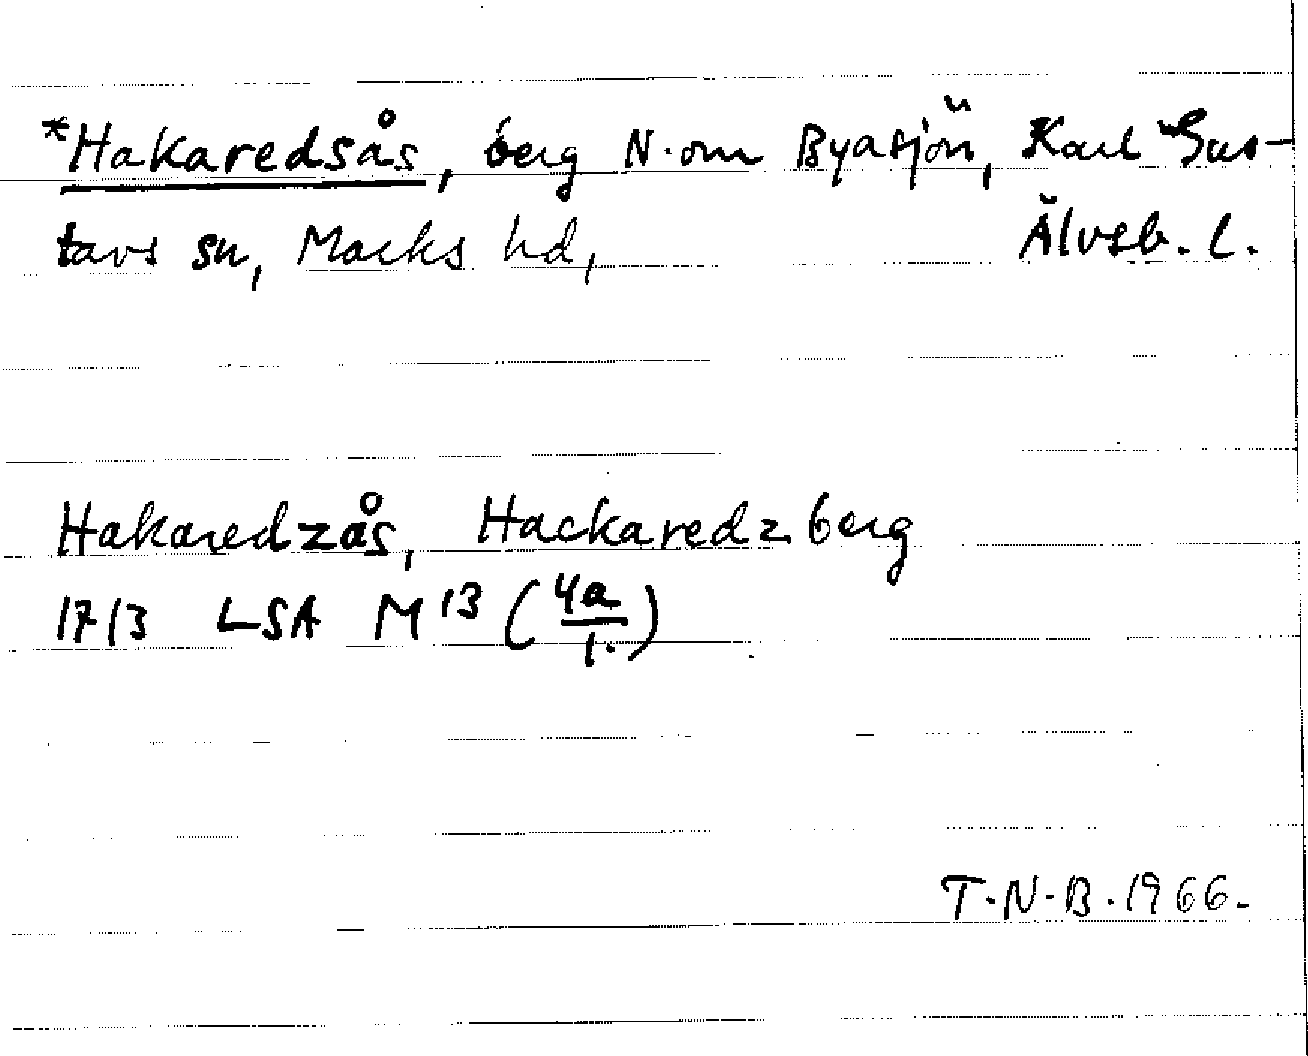 *Hakaredsås, berg N. om Byasjön, Karl Gus-
tavs sn, Marks hd, Älvsb. l.
Hakaredzås, Hackaredzberg
1713 LSA M 13 (4a/1.)
T.N.B. 1966.